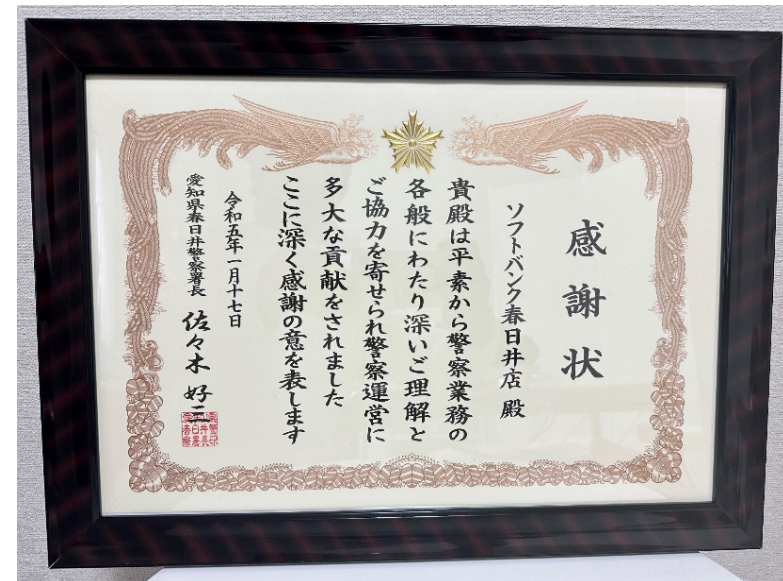 感謝状
ソフトバンク春日井店 殿
貴殿は平素から警察業務の
各般にわたり深いご理解と
ご協力を寄せられ警察運営に
多大な貢献をされました
ここに深く感謝の意を表します
令和五年一月十七日
愛知県春日井警察署長 佐々木 好三